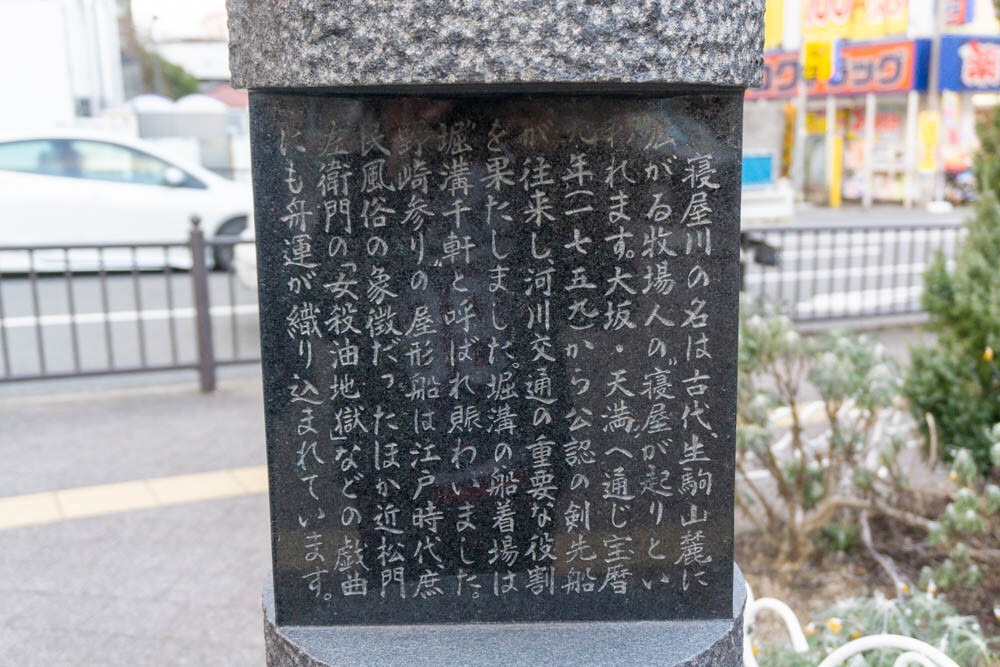 寝屋川の名は古代、生駒山麓に
広がる牧場人の〝寝屋〟が起りとい
われます。大坂・天満へ通じ宝暦
九年(一七五九)から公認の剣先船
が往来し河川交通の重要な役割
を果たしました。堀溝の船着場は
〝堀溝千軒〟と呼ばれ賑わいました。
野崎参りの屋形船は江戸時代、庶
民風俗の象徴だったほか近松門
左衛門の「女殺油地獄」などの戯曲
にも舟運が織り込まれています。
薬
100